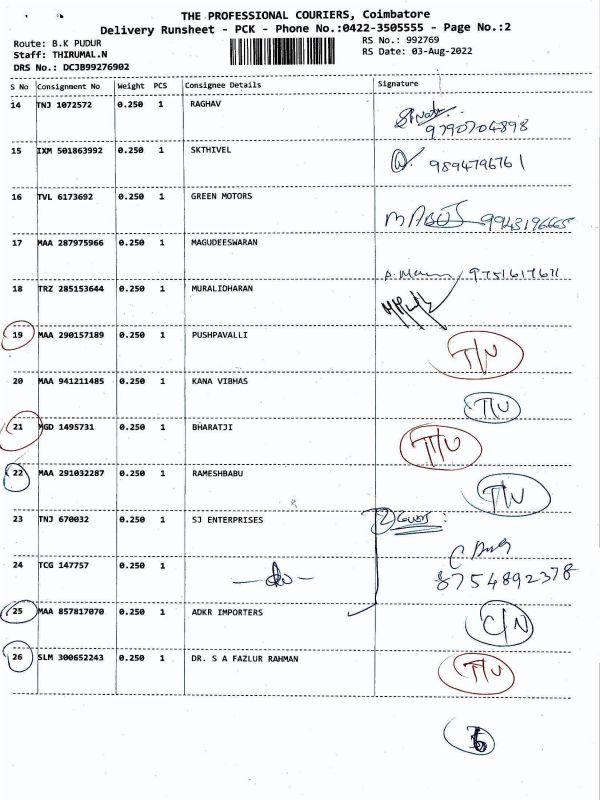 THE PROFESSIONAL COURIERS, Coimbatore
Delivery Runsheet - PCK - Phone No.:0422-3505555 - Page No.:2
Route: B.K PUDUR
Staff: THIRUMAL.N
DRS No.: DCJB99276902
RS No.: 992769
RS Date: 03-Aug-2022
S No Consignment No Weight PCS Consignee Details Signature
14 TNJ 1072572 0.250 1 RAGHAV
9790704898
15 IXM 501863992 0.250 1 SKTHIVEL
9894796761
16 TVL 6173692 0.250 1 GREEN MOTORS
9943196665
17 MAA 287975966 0.250 1 MAGUDEESWARAN
9751617671
18 TRZ 285153644 0.250 1 MURALIDHARAN
19 MAA 290157189 0.250 1 PUSHPAVALLI
T/U
20 MAA 941211485 0.250 1 KANA VIBHAS
T/U
21 MGD 1495731 0.250 1 BHARATJI
T/U
22 MAA 291032287 0.250 1 RAMESHBABU
T/U
23 TNJ 670032 0.250 1 SJ ENTERPRISES
2
24 TCG 147757 0.250 1 -do-
8754892378
25 MAA 857817070 0.250 1 ADKR IMPORTERS
C/N
26 SLM 300652243 0.250 1 DR. S A FAZLUR RAHMAN
T/U